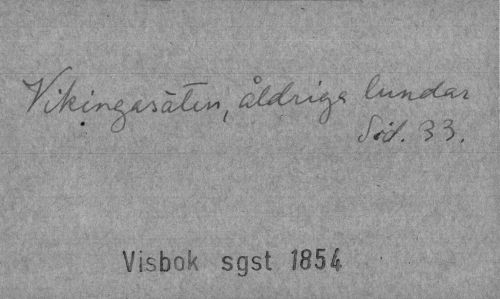 Vikingasäten, åldriga lundar
Sid. 33.
Visbok sgst 1854